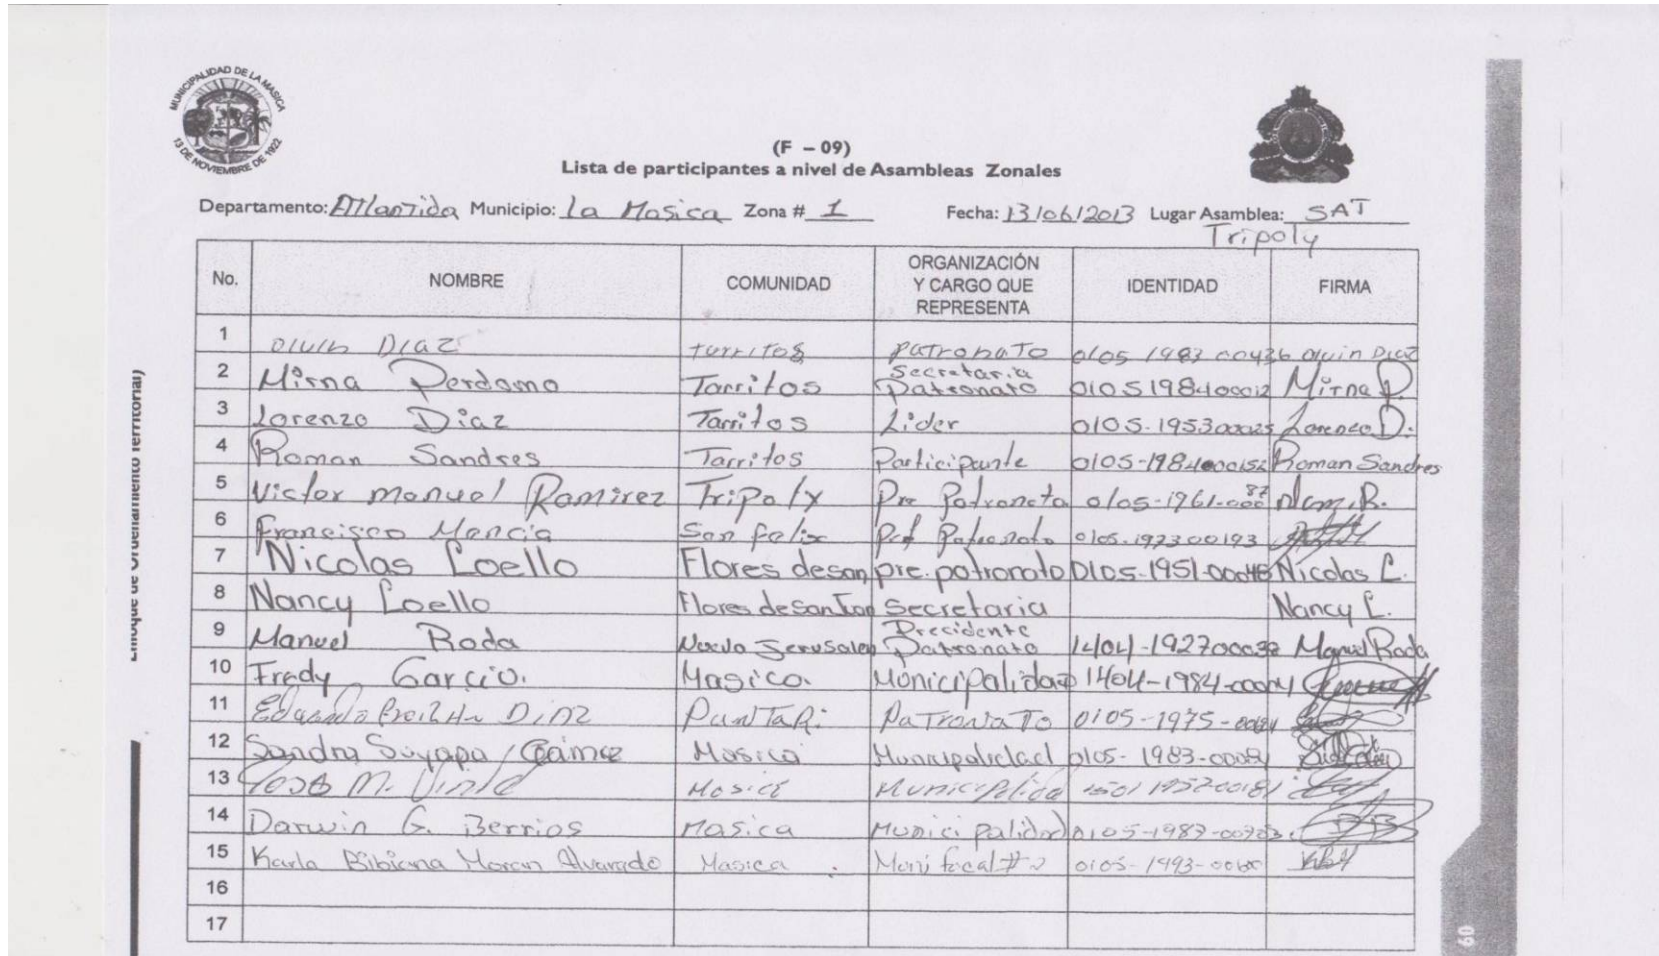 MUNICIPALIDAD DE LA MASICA
13 DE NOVIEMBRE DE 1922
(F – 09)
Lista de participantes a nivel de Asambleas Zonales
Departamento: Atlantida Municipio: La Masica Zona # 1 Fecha: 13/06/2013 Lugar Asamblea: SAT
Tripoly
No. NOMBRE COMUNIDAD ORGANIZACIÓN Y CARGO QUE REPRESENTA IDENTIDAD FIRMA
1 olvin DIAZ tarritos patronato 0105 1983 00436 olvin DIAZ
2 Mirna Perdomo Tarritos Secretaria Patronato 0105198400012 Mirna P.
3 Lorenzo Diaz Tarritos Lider 0105-195300025 Lorenzo D.
4 Roman Sandres Tarritos Participante 0105-198400152 Roman Sandres
5 Victor manuel Ramirez Tripoly Pre Patronato 0105-1961-00087
6 Francisco Mencia San felix Patronato 0105-197300193
7 Nicolas Coello Flores de san pre. patronato 0105-1951-00048 Nicolas C.
8 Nancy Coello Flores de San secretaria Nancy C.
9 Manuel Roda Nueva Jerusalen Precidente Patronato 1404-192700032 Manuel Roda
10 Fredy Garcia. Masica. Municipalidad 1404-1984-00004
11 DIAZ PATRONATO 0105-1975-
12 Sandra Suyapa Masica Municipalidad 0105-1983-
13 Jose M. Masica Municipalida 1501 1952-00181
14 Darwin G. Berrios Masica Municipalidad 0105-1987-
15 Karla Bibiana Moran Alvarado Masica 0105-1993-
16
17
Enfoque de Ordenamiento Territorial)
60